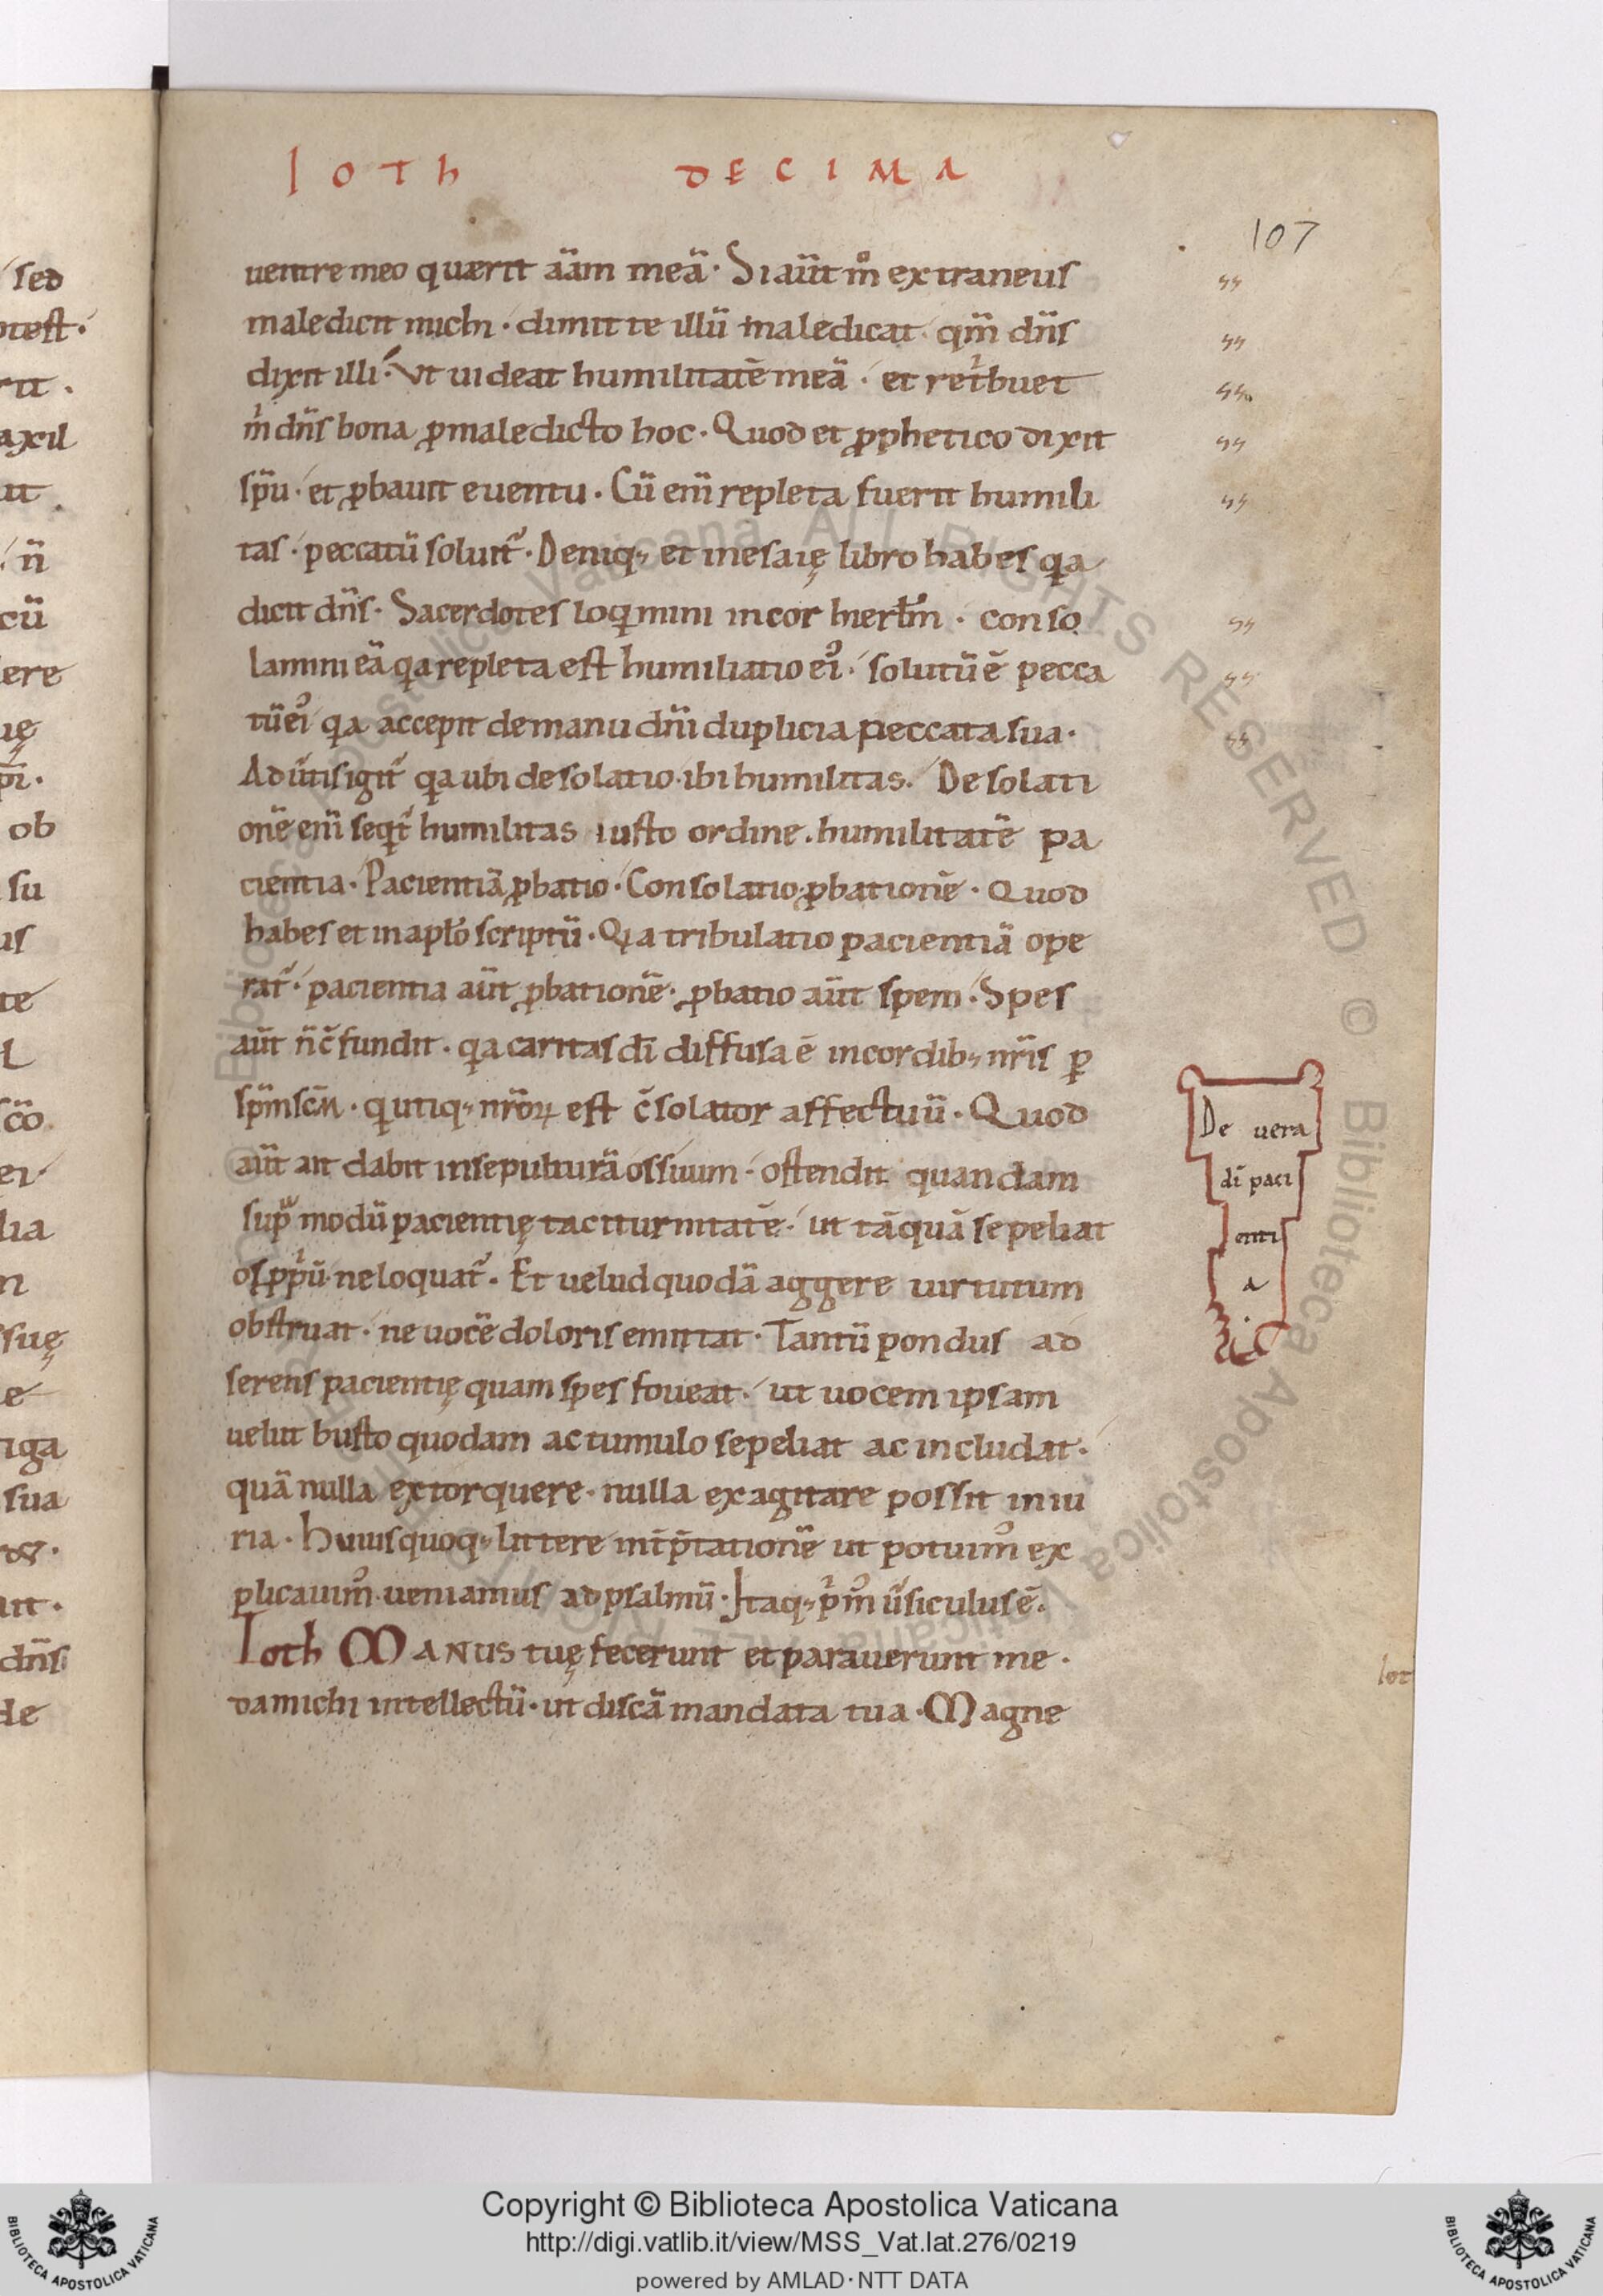 IOTH DECIMA
107
uentre meo querit ãam meã. Si aũt m̊ extraneus
maledicit michi. dimitte illũ maledicat. qm̃ dñs
dixit illi. Vt uideat humilitatẽ meã. et retͥbuet
m̍ dñs bona ꝓ maledicto hoc. Quod et ꝓphetico dixit
sp̃u. et ꝓbauit euentu. Cũ eni̅ repleta fuerit humili
tas. peccatũ soluit᷑. Deniq; et in esaię libro habes qͥa
dicit dñs. Sacerdotes loqͥmini in cor hierl̃m. conso
lamini eã qͥa repleta est humiliatio eiꝰ. solutũ ẽ pecca
tũ eiꝰ qͥa accepit de manu dñi duplicia peccata sua.
Aduͥtisigit᷑ qͥa ubi desolatio. ibi humilitas. Desolati
onẽ eni̅ seqͥt᷑ humilitas iusto ordine. humilitatẽ pa
cientia. Pacientiã ꝓbatio. Consolatio ꝓbationẽ. Quod
habes et in apl̃o scriptũ. Qͥa tribulatio pacientiã ope
rat᷑. pacientia aũt ꝓbationẽ. ꝓbatio aũt spem. Spes
aũt ñ c̃fundit. qͥa caritas di̅ diffusa ẽ in cordib; nr̃is ꝑ
sp̃m sc̃m. qͥ utiq; nr̃oꝝ est c̃solator affectuũ. Quod
aũt ait dabit in sepulturã ossium. ostendit quandam
supͣ modũ pacientię taciturnitatẽ. ut tãquã sepeliat
os ꝓpͥũ ne loquat᷑. Et uelud quodã aggere uirtutum
obstruat. ne uocẽ doloris emittat. Tantũ pondus ad
serens pacientię quam spes foueat. ut uocem ipsam
uelut busto quodam ac tumulo sepeliat ac includat.
quã nulla extorquere. nulla exagitare possit iniu
ria. Huius quoq; littere int̃p̃tationẽ ut potuimꝰ ex
plicauimꝰ. ueniamus ad psalmũ. Itaq; pͥmꝰ ũsiculus ẽ.
Ioth MANUS tuę fecerunt et parauerunt me.
da michi intellectũ. ut discã mandata tua. Magne
De uera
di̅ paci
enti
a
lot
Copyright © Biblioteca Apostolica Vaticana
http://digi.vatlib.it/view/MSS_Vat.lat.276/0219
powered by AMLAD·NTT DATA
BIBLIOTECA APOSTOLICA VATICANA
BIBLIOTECA APOSTOLICA VATICANA